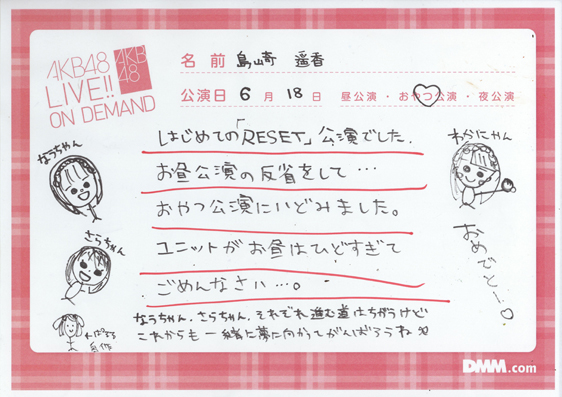 AKB48
LIVE!!
ON DEMAND
AKB
48
名前 島崎 遥香
公演日 6月 18日 昼公演・おやつ公演・夜公演
はじめての「RESET」公演でした.
お昼公演の反省をして…
おやつ公演にいどみました。
ユニットがお昼はひどすぎて
ごめんなさい…。
なっちゃん、さらちゃん、それぞれ進む道はちがうけど
これからも一緒に夢に向かってがんばろうね
なっちゃん
さらちゃん
ぱるる
自作
わかにゃん
おめでとー
DMM.com